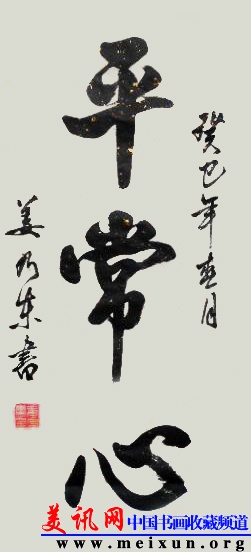 平常心
癸巳年春月
姜乃东书
美讯网
中国书画收藏频道
www.meixun.org